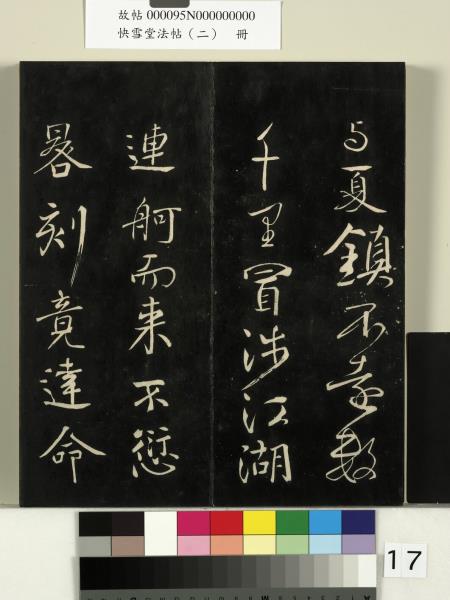 故帖 000095N000000000
快雪堂法帖（二） 冊
与夏鎮不遠數
千里冒涉江湖
連舸而来不愆
晷刻竟達命
17